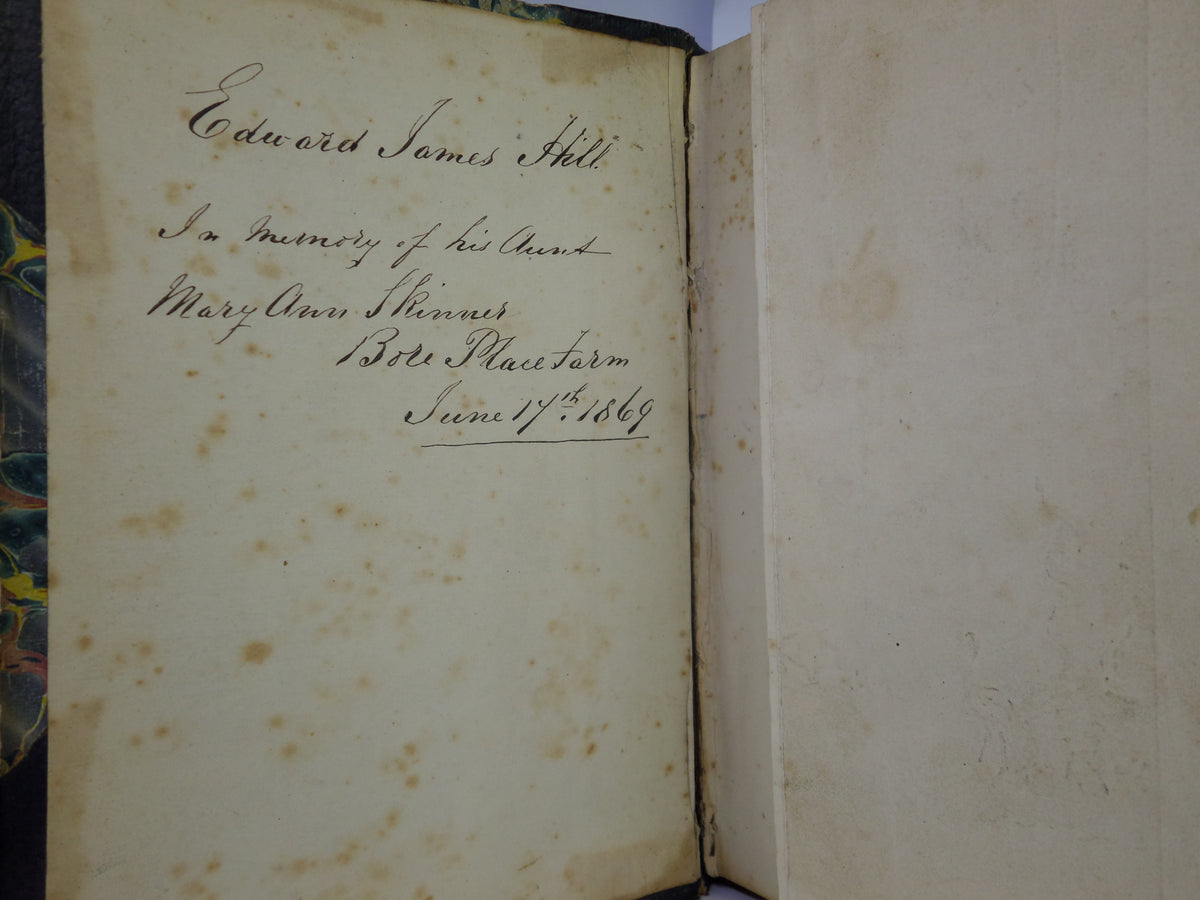 Edward James Hill.
In Memory of his Aunt
Mary Ann Skinner
Bore Place Farm
June 17th. 1869